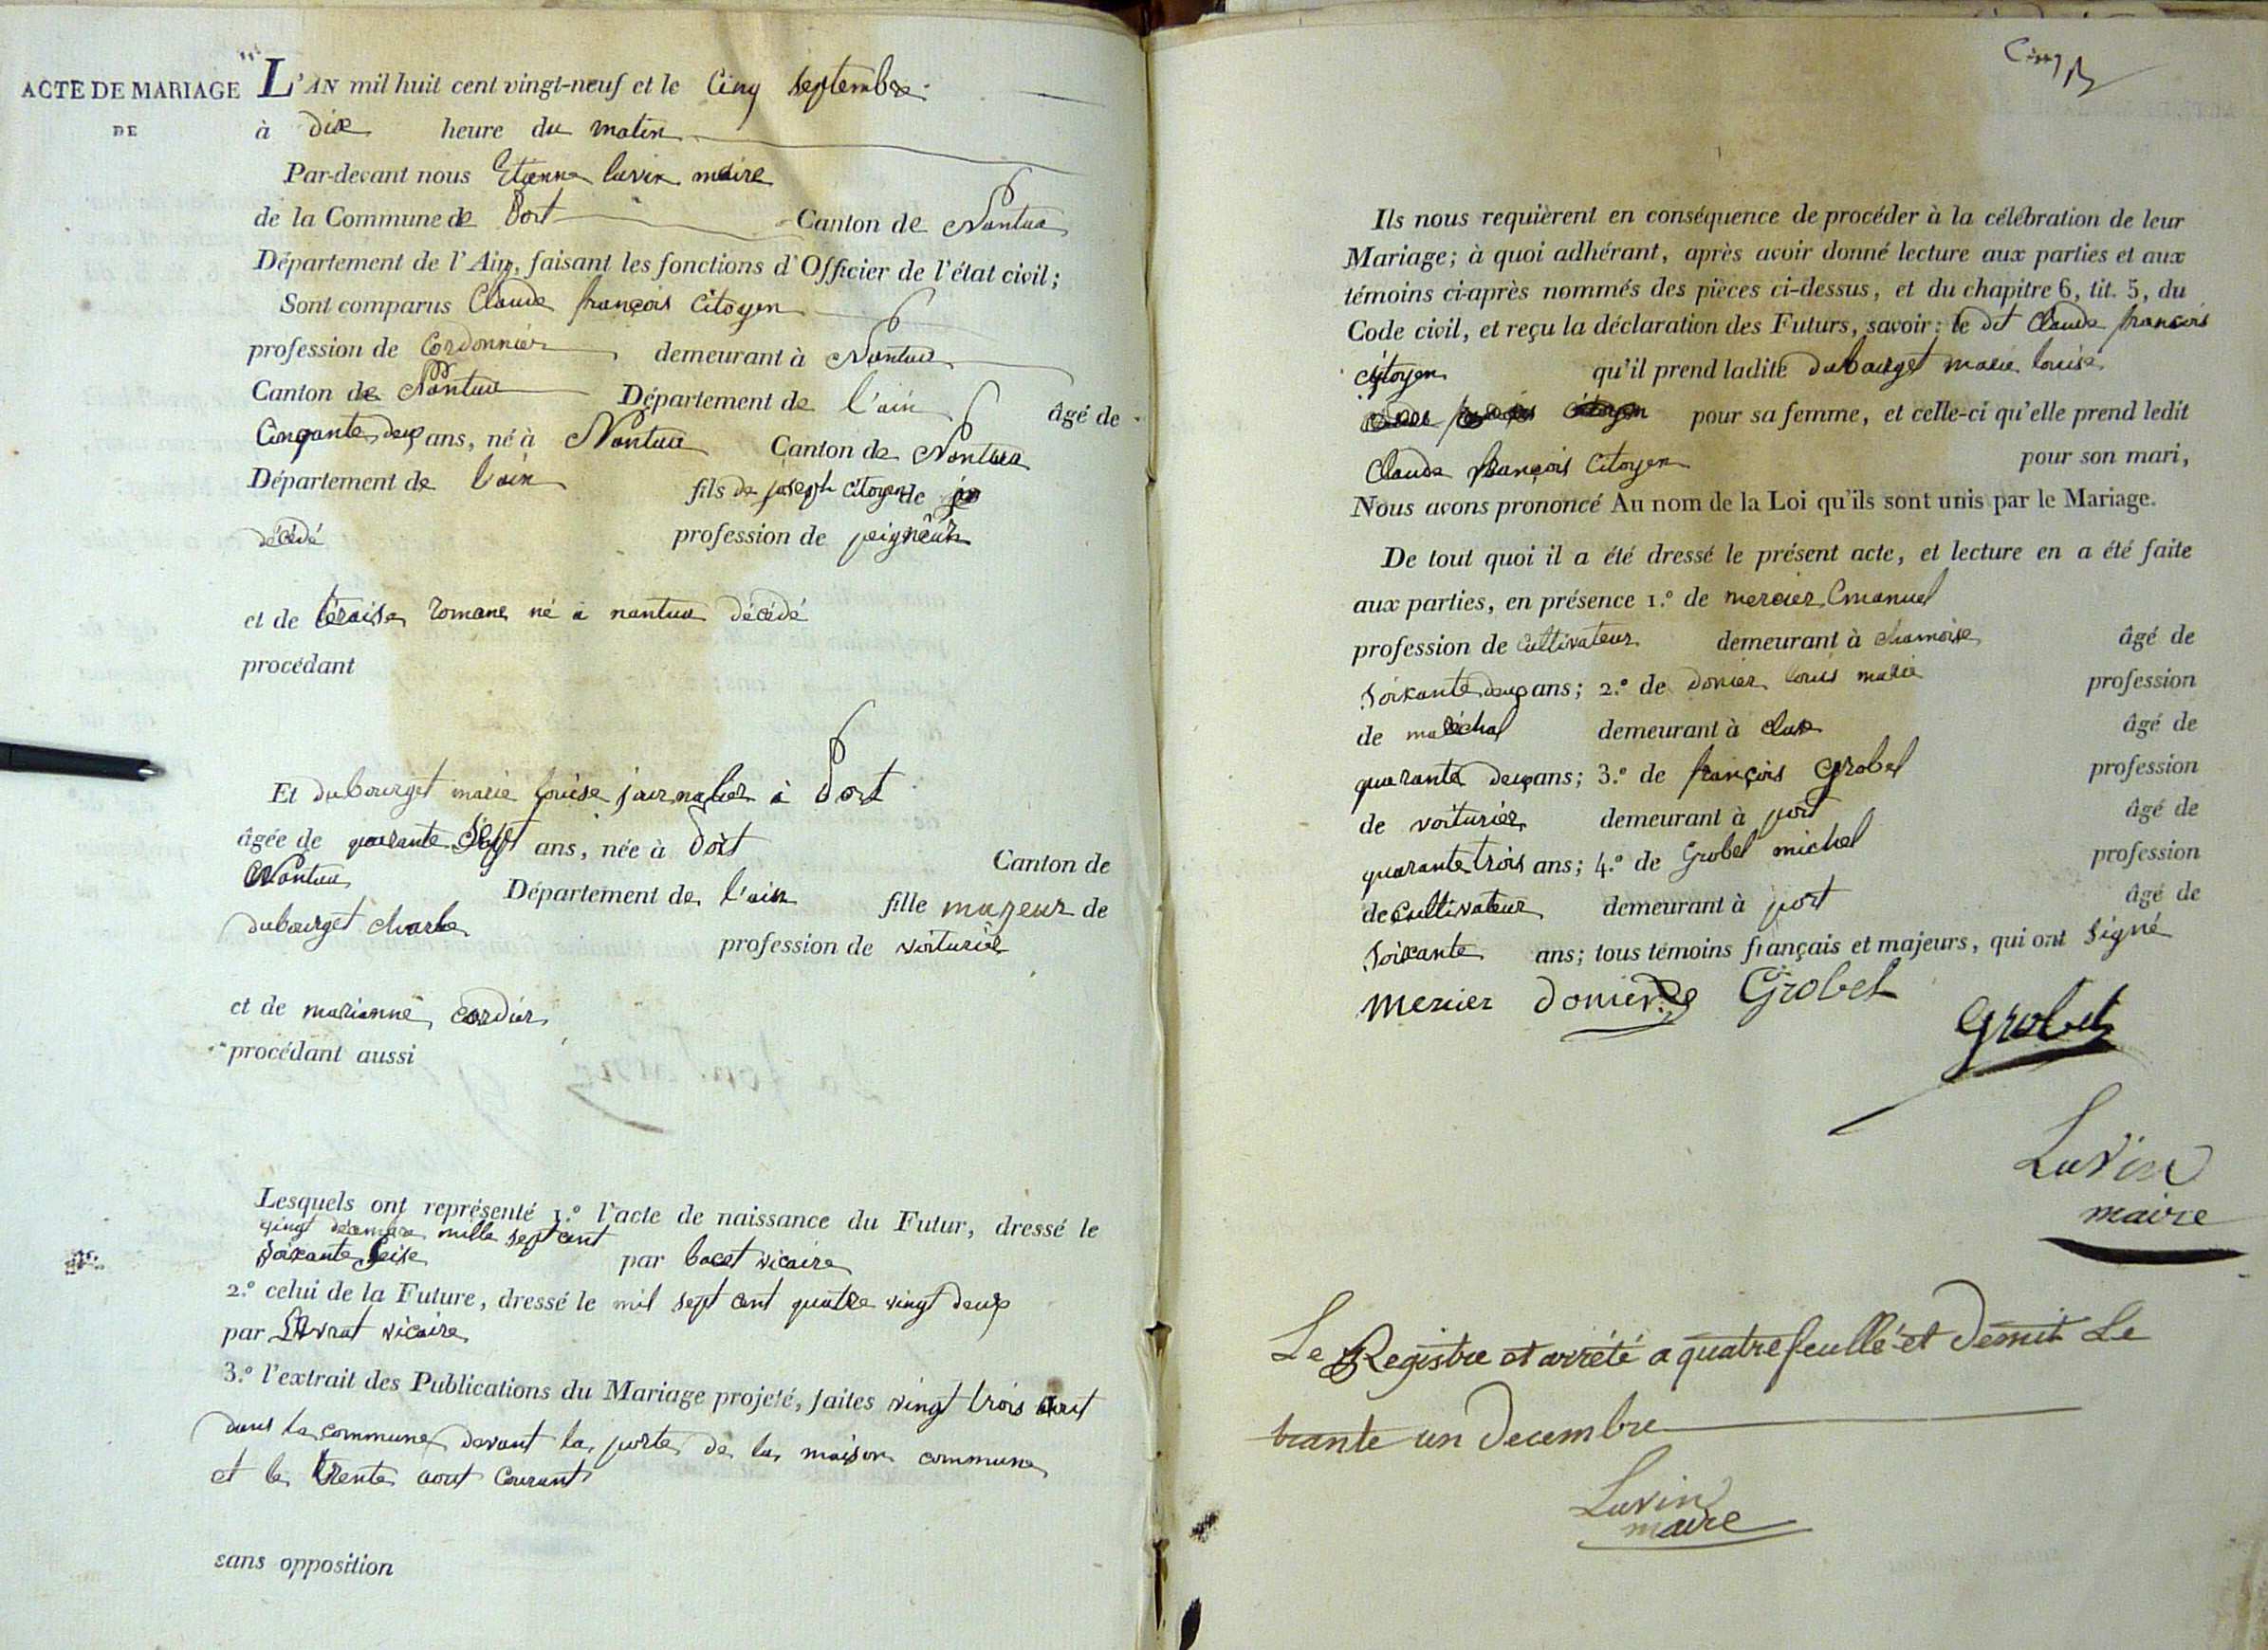 ACTE DE MARIAGE
DE
L'AN mil huit cent vingt-neuf et le Cinq septembre
à dix heure du matin
Par-devant nous Etienne luvin maire
de la Commune de Port Canton de Nantua
Département de l'Ain, faisant les fonctions d'Officier de l'état civil;
Sont comparus Claude françois Citoyen
profession de Cordonnier demeurant à Nantua
Canton de Nantua Département de l'ain âgé de
Cinqante deux ans, né à Nantua Canton de Nantua
Département de l'ain fils de joseph citoyen de
décédé profession de peigneur
et de téraise romane né a nantua décédé
procédant
Et dubourget marie louise journalier a Port
âgée de quarante Sept ans, née à Port Canton de
Nantua Département de l'ain fille majeur de
dubourget charle profession de voiturier
et de marianne cordier
procédant aussi
Lesquels ont représenté 1.º l'acte de naissance du Futur, dressé le
vingt décembre mille sept cent
soixante seise par bacet vicaire
2.º celui de la Future, dressé le mil sept cent quatre vingt deux
par vicaire
3.º l'extrait des Publications du Mariage projeté, faites vingt trois aout
dans la commune devant la porte de la maison commune
et le trente aout courant
sans opposition
Cinq
Ils nous requièrent en conséquence de procéder à la célébration de leur
Mariage; à quoi adhérant, après avoir donné lecture aux parties et aux
témoins ci-après nommés des pièces ci-dessus, et du chapitre 6, tit. 5, du
Code civil, et reçu la déclaration des Futurs, savoir: le dit Claude francois
citoyen qu'il prend ladite dubourget marie louise
pour sa femme, et celle-ci qu'elle prend ledit
Claude françois Citoyen pour son mari,
Nous avons prononcé Au nom de la Loi qu'ils sont unis par le Mariage.
De tout quoi il a été dressé le présent acte, et lecture en a été faite
aux parties, en présence 1.º de mercier Emanuel
profession de cultivateur demeurant à chamoise âgé de
soixante deux ans; 2.º de donier louis marie profession
de maréchal demeurant à âgé de
quarante deux ans; 3.º de françois Grobel profession
de voiturier demeurant à port âgé de
quarante trois ans; 4.º de Grobel michel profession
de cultivateur demeurant à port âgé de
soixante ans; tous témoins français et majeurs, qui ont signé
mercier donier Grobel
Grobel
Luvin
maire
Le Registre et arrété a quatre feullé et demit Le
trante un decembre
Luvin
maire